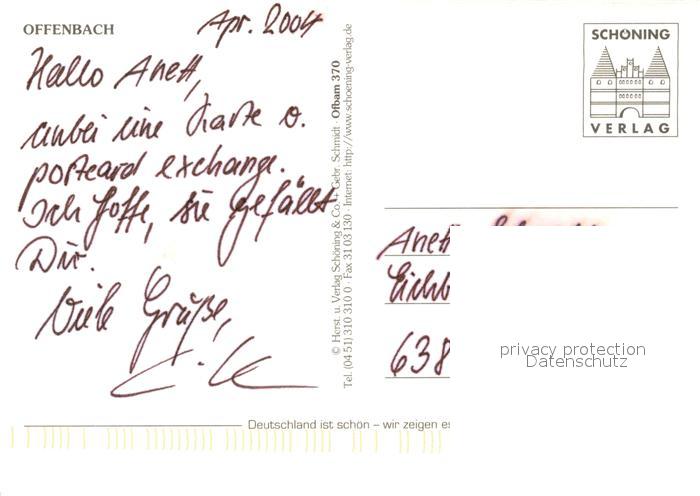 OFFENBACH
Apr. 2004
Hallo Anett,
anbei eine Karte v.
postcard exchange.
Ich hoffe, sie gefällt
Dir.
Viele Grüße,
© Herst. u. Verlag Schöning & Co. + Gebr. Schmidt · Ofbam 370
Tel. (04 51) 310 310 0 · Fax 31 03 130 · Internet: http://www.schoening-verlag.de
SCHÖNING
VERLAG
Anett
Eichb
638
privacy protection
Datenschutz
Deutschland ist schön – wir zeigen es